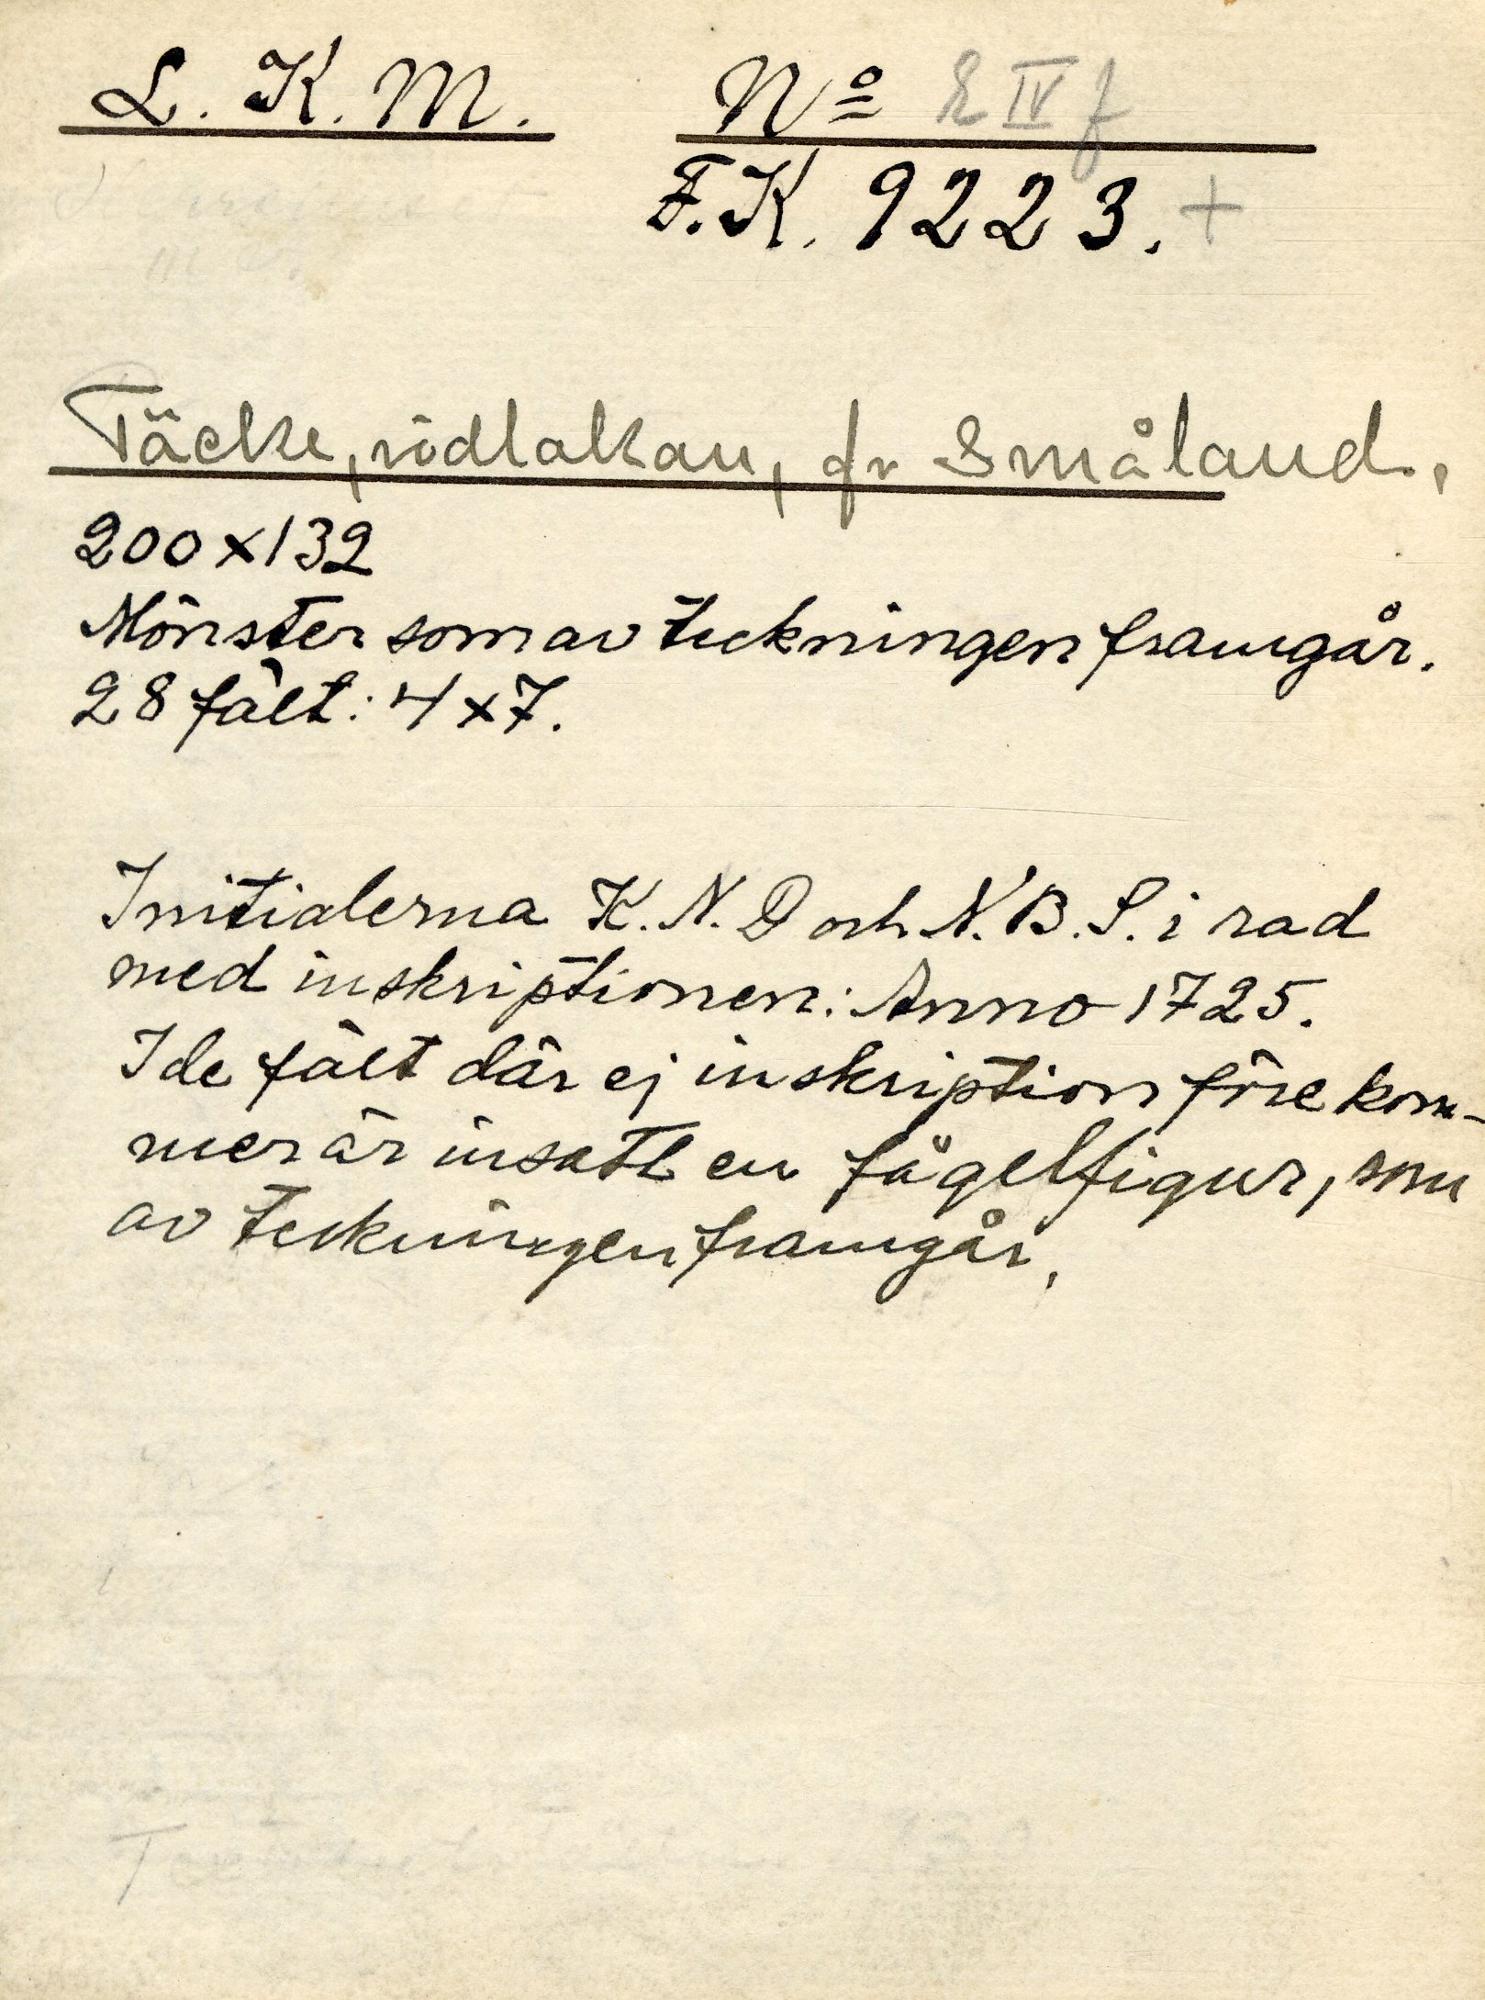 L. K. M. Nº E IV f
F.K. 9223. +
Täcke, rödlakan, fr Småland.,
200 x 132
Mönster som av teckningen framgår.
28 fält: 4 x 7.
Initialerna K. N. D och N. B. S. i rad
med inskriptionen: Anno 1725.
I de fält där ej inskription förekom-
mer är insatt en fågelfigur, som
av teckningen framgår.